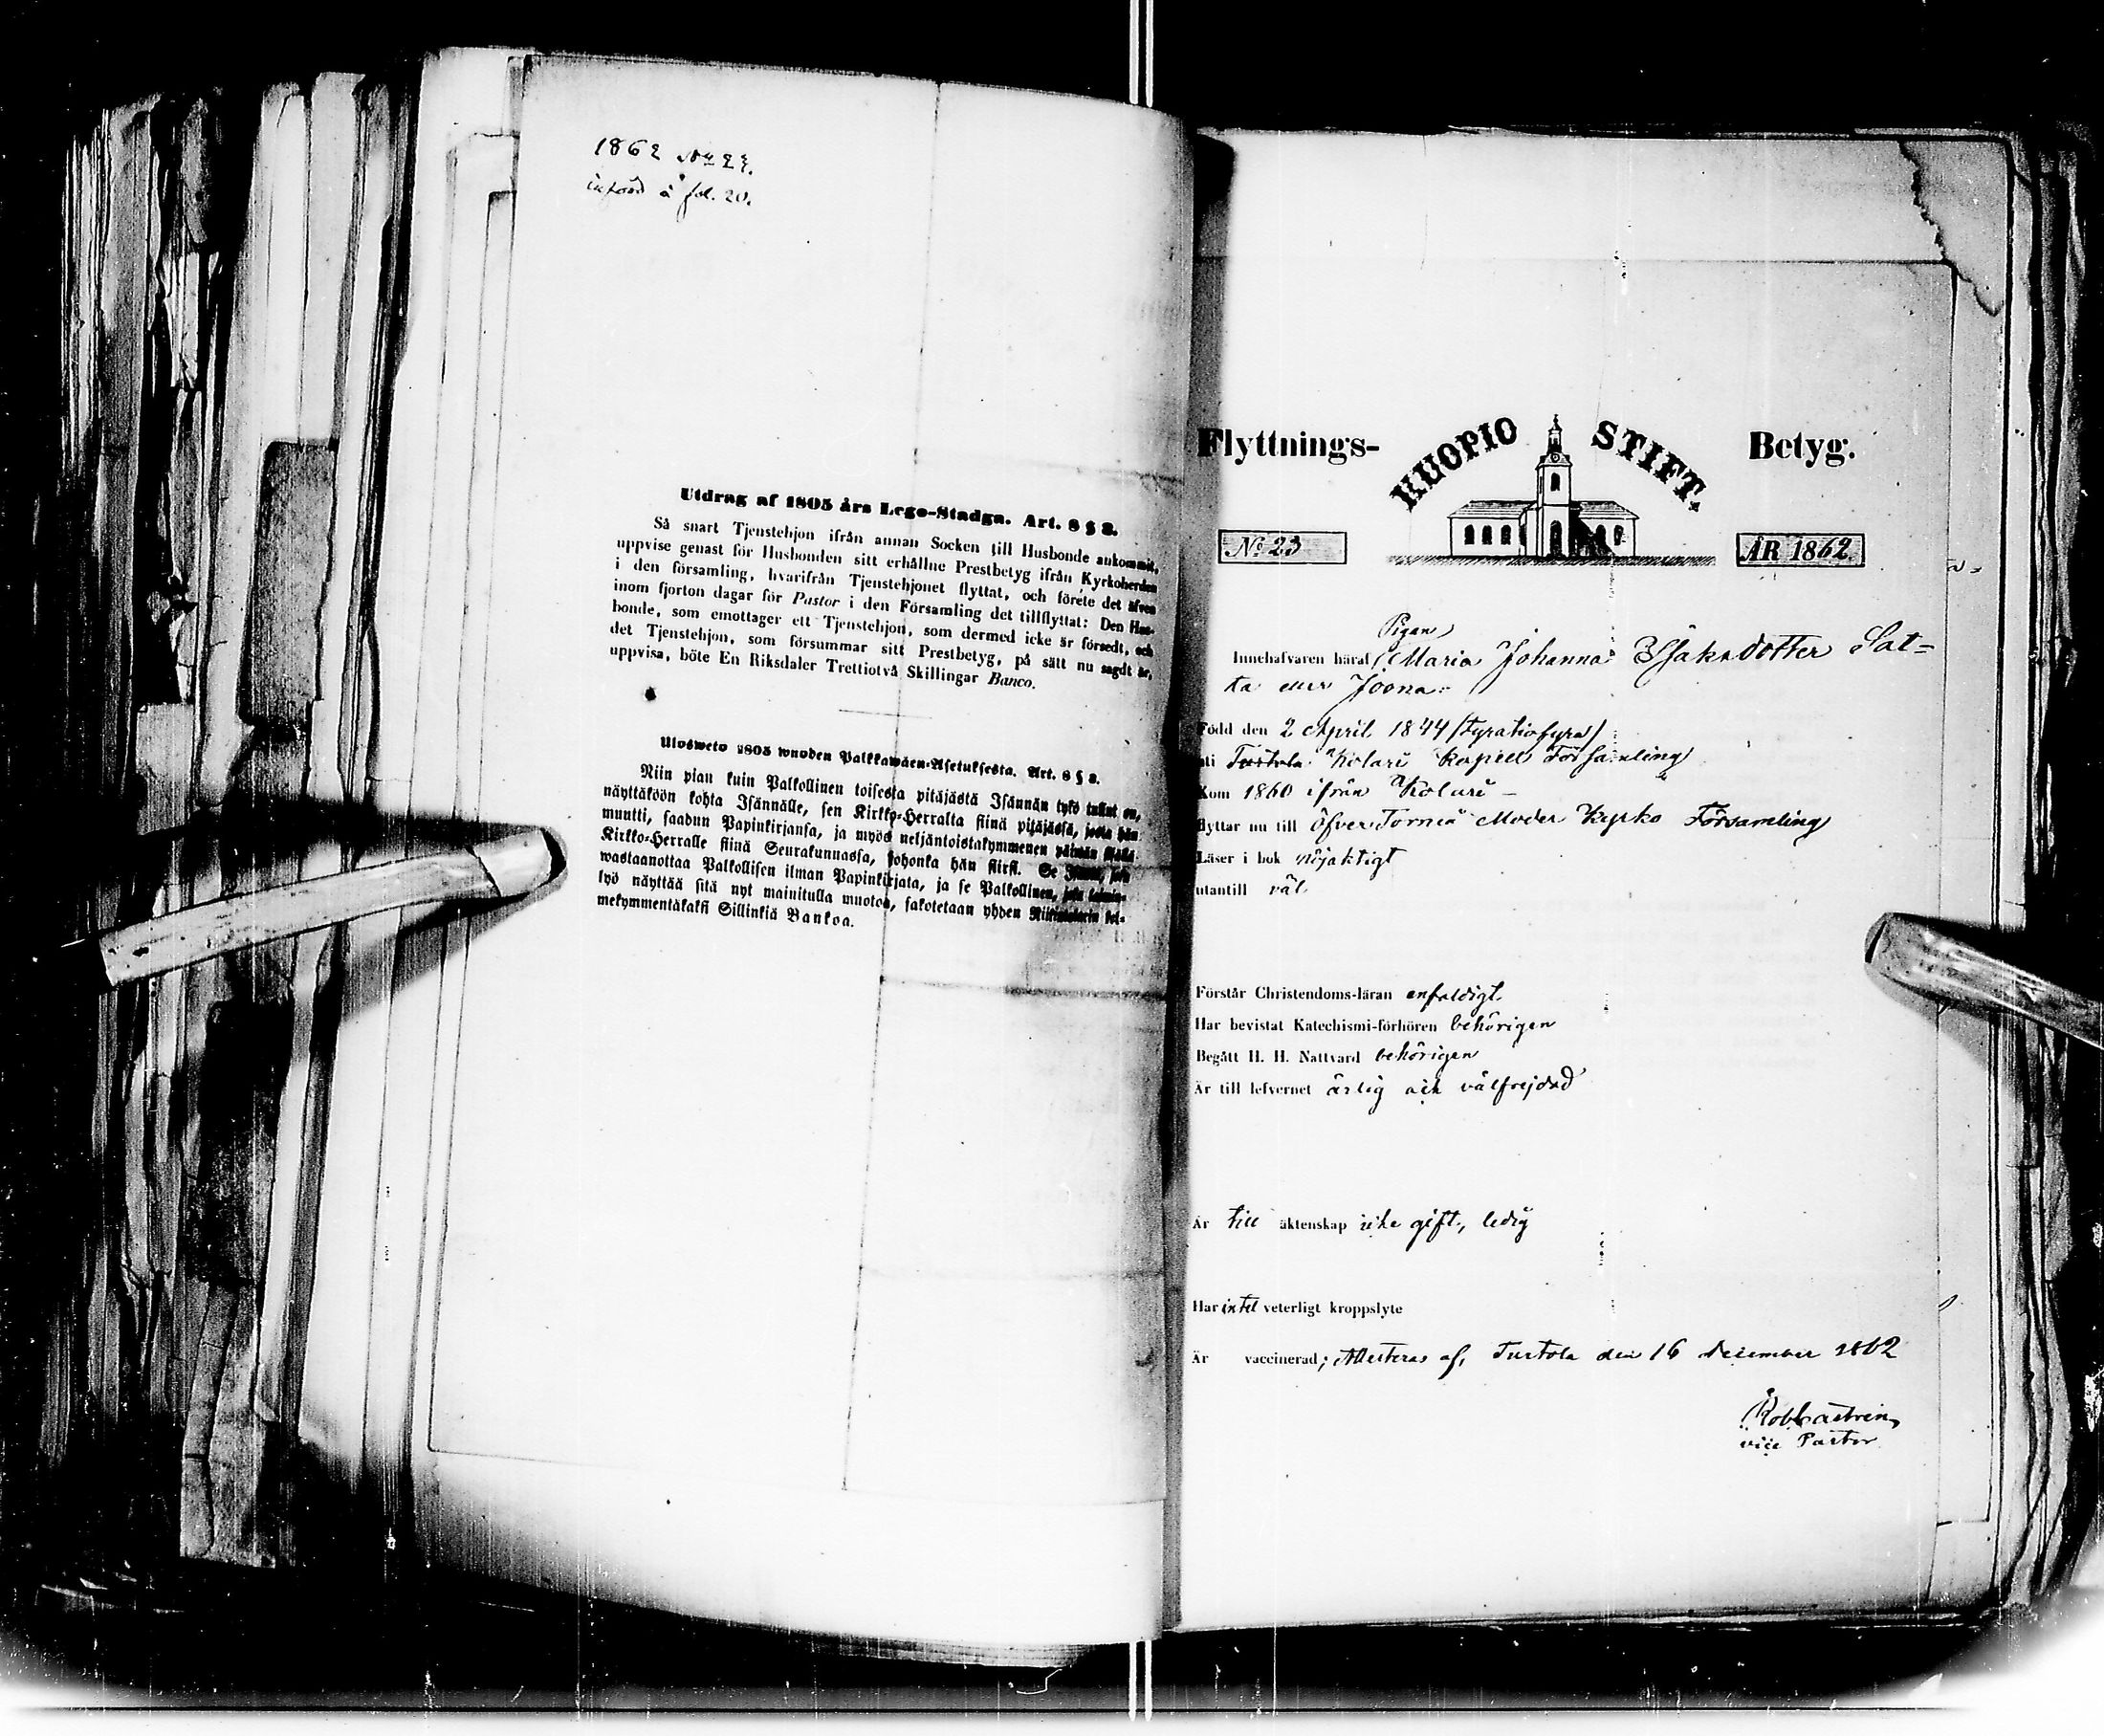 1862 No 23.
införd å fol. 20.
Utdrag af 1805 års Lego-Stadga. Art. 8 § 2.
Så snart Tjenstehjon ifrån annan Socken till Husbonde ankommit,
uppvise genast för Husbonden sitt erhållne Prestbetyg ifrån Kyrkoherden
i den församling, hvarifrån Tjenstehjonet flyttat, och förete det äfven
inom fjorton dagar för Pastor i den Församling det tillflyttat: Den Hus-
bonde, som emottager ett Tjenstehjon, som dermed icke är försedt, och
det Tjenstehjon, som försummar sitt Prestbetyg, på sätt nu sagdt är,
uppvisa, böte En Riksdaler Trettiotvå Skillingar Banco.
Ulosweto 1805 wuoden Palkkawäen-Asetuksesta. Art. 8 § 2.
Niin pian kuin Palkollinen toisesta pitäjästä Isännän tykö tullut on,
näyttäköön kohta Isännälle, sen Kirkko-Herralta siinä pitäjässä, josta hän
muutti, saadun Papinkirjansa, ja myös neljäntoistakymmenen päiwän sisällä
Kirkko-Herralle siinä Seurakunnassa, johonka hän siirsi. Se Isäntä, joka
wastaanottaa Palkollisen ilman Papinkirjata, ja se Palkollinen, joka laimin-
lyö näyttää sitä nyt mainitulla muoton, sakotetaan yhden Riikintalarin kol-
mekymmentäkaksi Sillinkiä Bankoa.
Flyttnings- KUOPIO STIFT. Betyg.
No 23 ÅR 1862.
Pigan
Innehafvaren häraf, Maria Johanna Isaksdotter Lat-
ta eller Joona
Född den 2 April 1844 (fyratiofyra)
uti Turtola Kolari Kapell Församling
Kom 1860 ifrån Kolari –
flyttar nu till Öfver Torneå Moder Kyrko Församling
Läser i bok nöjaktigt
utantill väl
Förstår Christendoms-läran enfaldigt.
Har bevistat Katechismi-förhören behörigen
Begått H. H. Nattvard behörigen
Är till lefvernet ärlig och välfrejdad
Är till äktenskap icke gift, ledig
Har intet veterligt kroppslyte
Är vaccinerad; Attesteras af, Turtola den 16 December 1862
Rob Castrén
vice Pastor